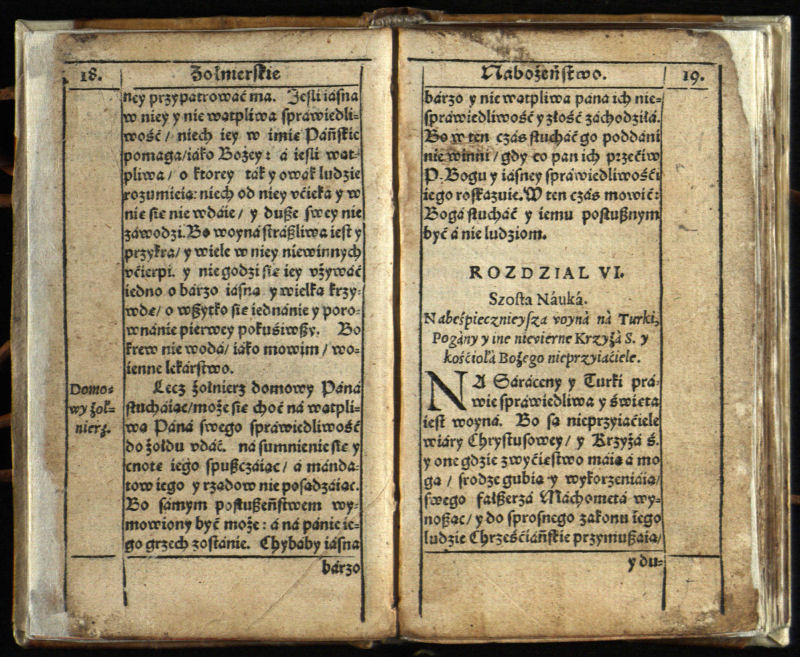 18.
Żołnierskie
ney przypatrować ma. Jesli iásna
w niey y nie wątpliwa spráwiedli-
wość / niech iey w imię Páńskie
pomaga/iáko Bożey: á iesli wąt-
pliwa / o ktorey ták y owák ludzie
rozumieią: niech od niey vćieka y w
nię się nie wdáie / y dusze swey nie
záwodzi. Bo woyná strászliwa iest y
przykra/ y wiele w niey niewinnych
vćierpi. y nie godzi się iey vżywáć
iedno o bárzo iásną y wielką krzy-
wdę/ o wszytko się iednánie y poro-
wnánie pierwey pokuśiwszy. Bo
krew nie wodá/ iáko mowim/ wo-
ienne lekárstwo.
Domo-
wy żoł-
nierz.
Lecz żołnierz domowy Páná
słucháiąc/może się choć ná wątpli-
wą Páná swego spráwiedliwość
do żołdu vdáć. ná sumnienie się y
cnotę iego spuszczáiąc/ á mándá-
tow iego y rządow nie posądzáiąc.
Bo sámym posłuszeństwem wy-
mowiony być może: á ná pánie ie-
go grzech zostánie. Chybáby iásna
bárzo
Nabożeństwo.
19.
bárzo y nie wątpliwa páná ich nie-
spráwiedliwość y złość záchodziłá.
Bo w ten czás słucháć go poddáni
nie winni / gdy co pan ich przećiw
P. Bogu y iásney spráwiedliwośći
iego roskázuie. W ten czás mowić:
Bogá słucháć y iemu posłusznym
być á nie ludziom.
ROZDZIAL VI.
Szosta Náuká.
Nabeśpiecznieysza voyná ná Turki,
Pogány y ine nievierne Krzyżá S. y
kośćiołá Bożego nieprzyiaćiele.
NA Sáráceny y Turki prá-
wie spráwiedliwa y święta
iest woyná. Bo są nieprzyiaćiele
wiáry Chrystusowey/ y Krzyżá ś.
y one gdzie zwyćięstwo máią á mo
gą / srodze gubią y wykorzeniáią/
swego fałszerzá Máchometá wy-
nosząc/ y do sprosnego zakonu iego
ludzie Chrześćiáńskie przymuszáią/
y du-